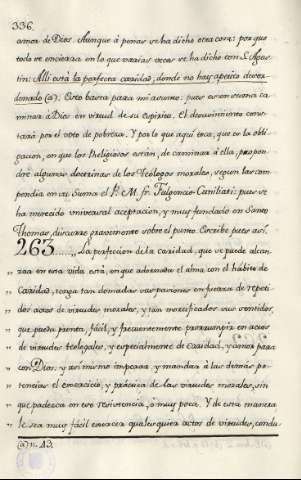 336.
amor de Dios. Aunque á penas se ha dicho otra cosa; porque
todo se encierra en lo que varias veces se ha dicho con S. Agus-
tin: Alli está la perfecta caridad, donde no hay apetito desor-
denado (a). Esto basta para mi asumo. pues es en
minar a Dios en virtud de su espiritu. El desasimiento cons-
tará por el voto de pobreza. Y por lo que aqui toca, que es la obli-
gacion, en que los Religiosos están, de caminar á ella, propon-
dré algunas doctrinas de los Teólogos morales, segun las com-
pendia en su Suma el P. M. fr. Fulgencio Cuniliati: pues se
ha merecido universal aceptacion, y muy fundado en Santo
Thomas, discurre gravemente sobre el punto. Escribe pues así.
263..... „La perfeccion de la caridad, que se puede alcan-
„ zar en esta vida está, en que adornado el alma con el hábito de
„ Caridad, tenga tan domadas sus pasiones en fuerza de repeti-
„ dos actos de virtudes morales, y tan mortificados sus sentidos,
„ que pueda pronta, fácil, y frecuentemente prorrumpir en actos
„ de virtudes teologales, y especialmente de caridad, y amor para
„ con Dios, y asi mismo imperar, y mandar á las demás po-
„ tencias el exercicio, y práctica de las virtudes morales, sin
„ que padezca en eso resistencia, ó muy poca. Y de esta manera
„ le sea muy fácil exercer qualesquier actos de virtudes, condu-
(a) n. 43.